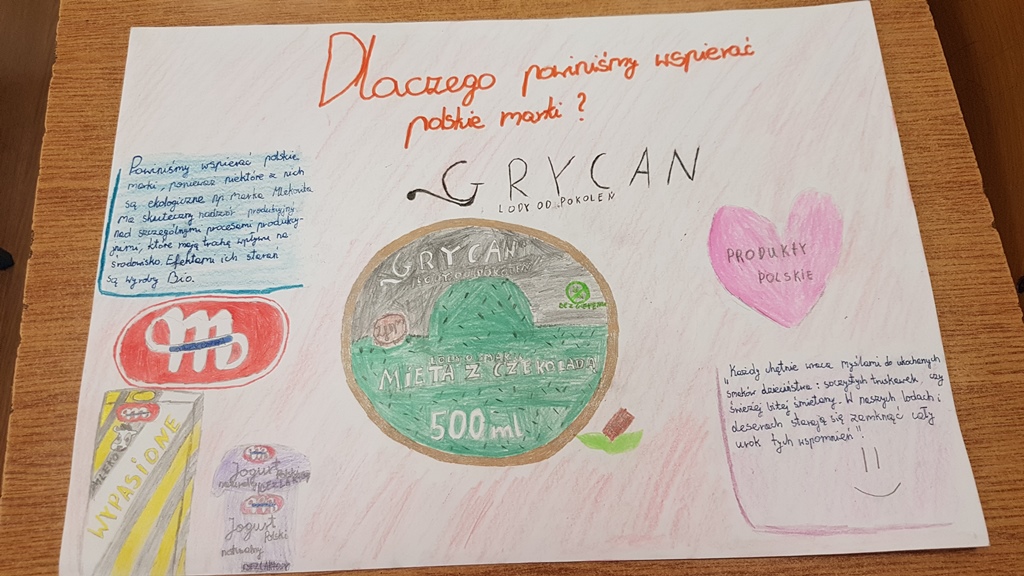 Dlaczego powinniśmy wspierać
polskie marki?
GRYCAN
LODY OD POKOLEŃ
Powinniśmy wspierać polskie
marki, ponieważ niektóre z nich
są ekologiczne np. Marka Mlekovita
Ma skuteczny nadzór produkcyjny
nad szczególnymi procesami produkcyj-
nymi, które mają trochę wpływu na
środowisko. Efektami ich starań
są wyroby Bio.
GRYCAN
LODY OD POKOLEŃ
LODY O SMAKU
MIĘTA Z CZEKOLADĄ
500 ml
PRODUKTY
POLSKIE
"Każdy chętnie wraca myślami do ukochanych
smaków dzieciństwa: soczystych truskawek, czy
świeżej bitej śmietany. W naszych lodach i
deserach staramy się zamknąć cały
urok tych wspomnień"
MLEKO
WYPASIONE
Jogurt Polski
naturalny
Jogurt
Polski
naturalny